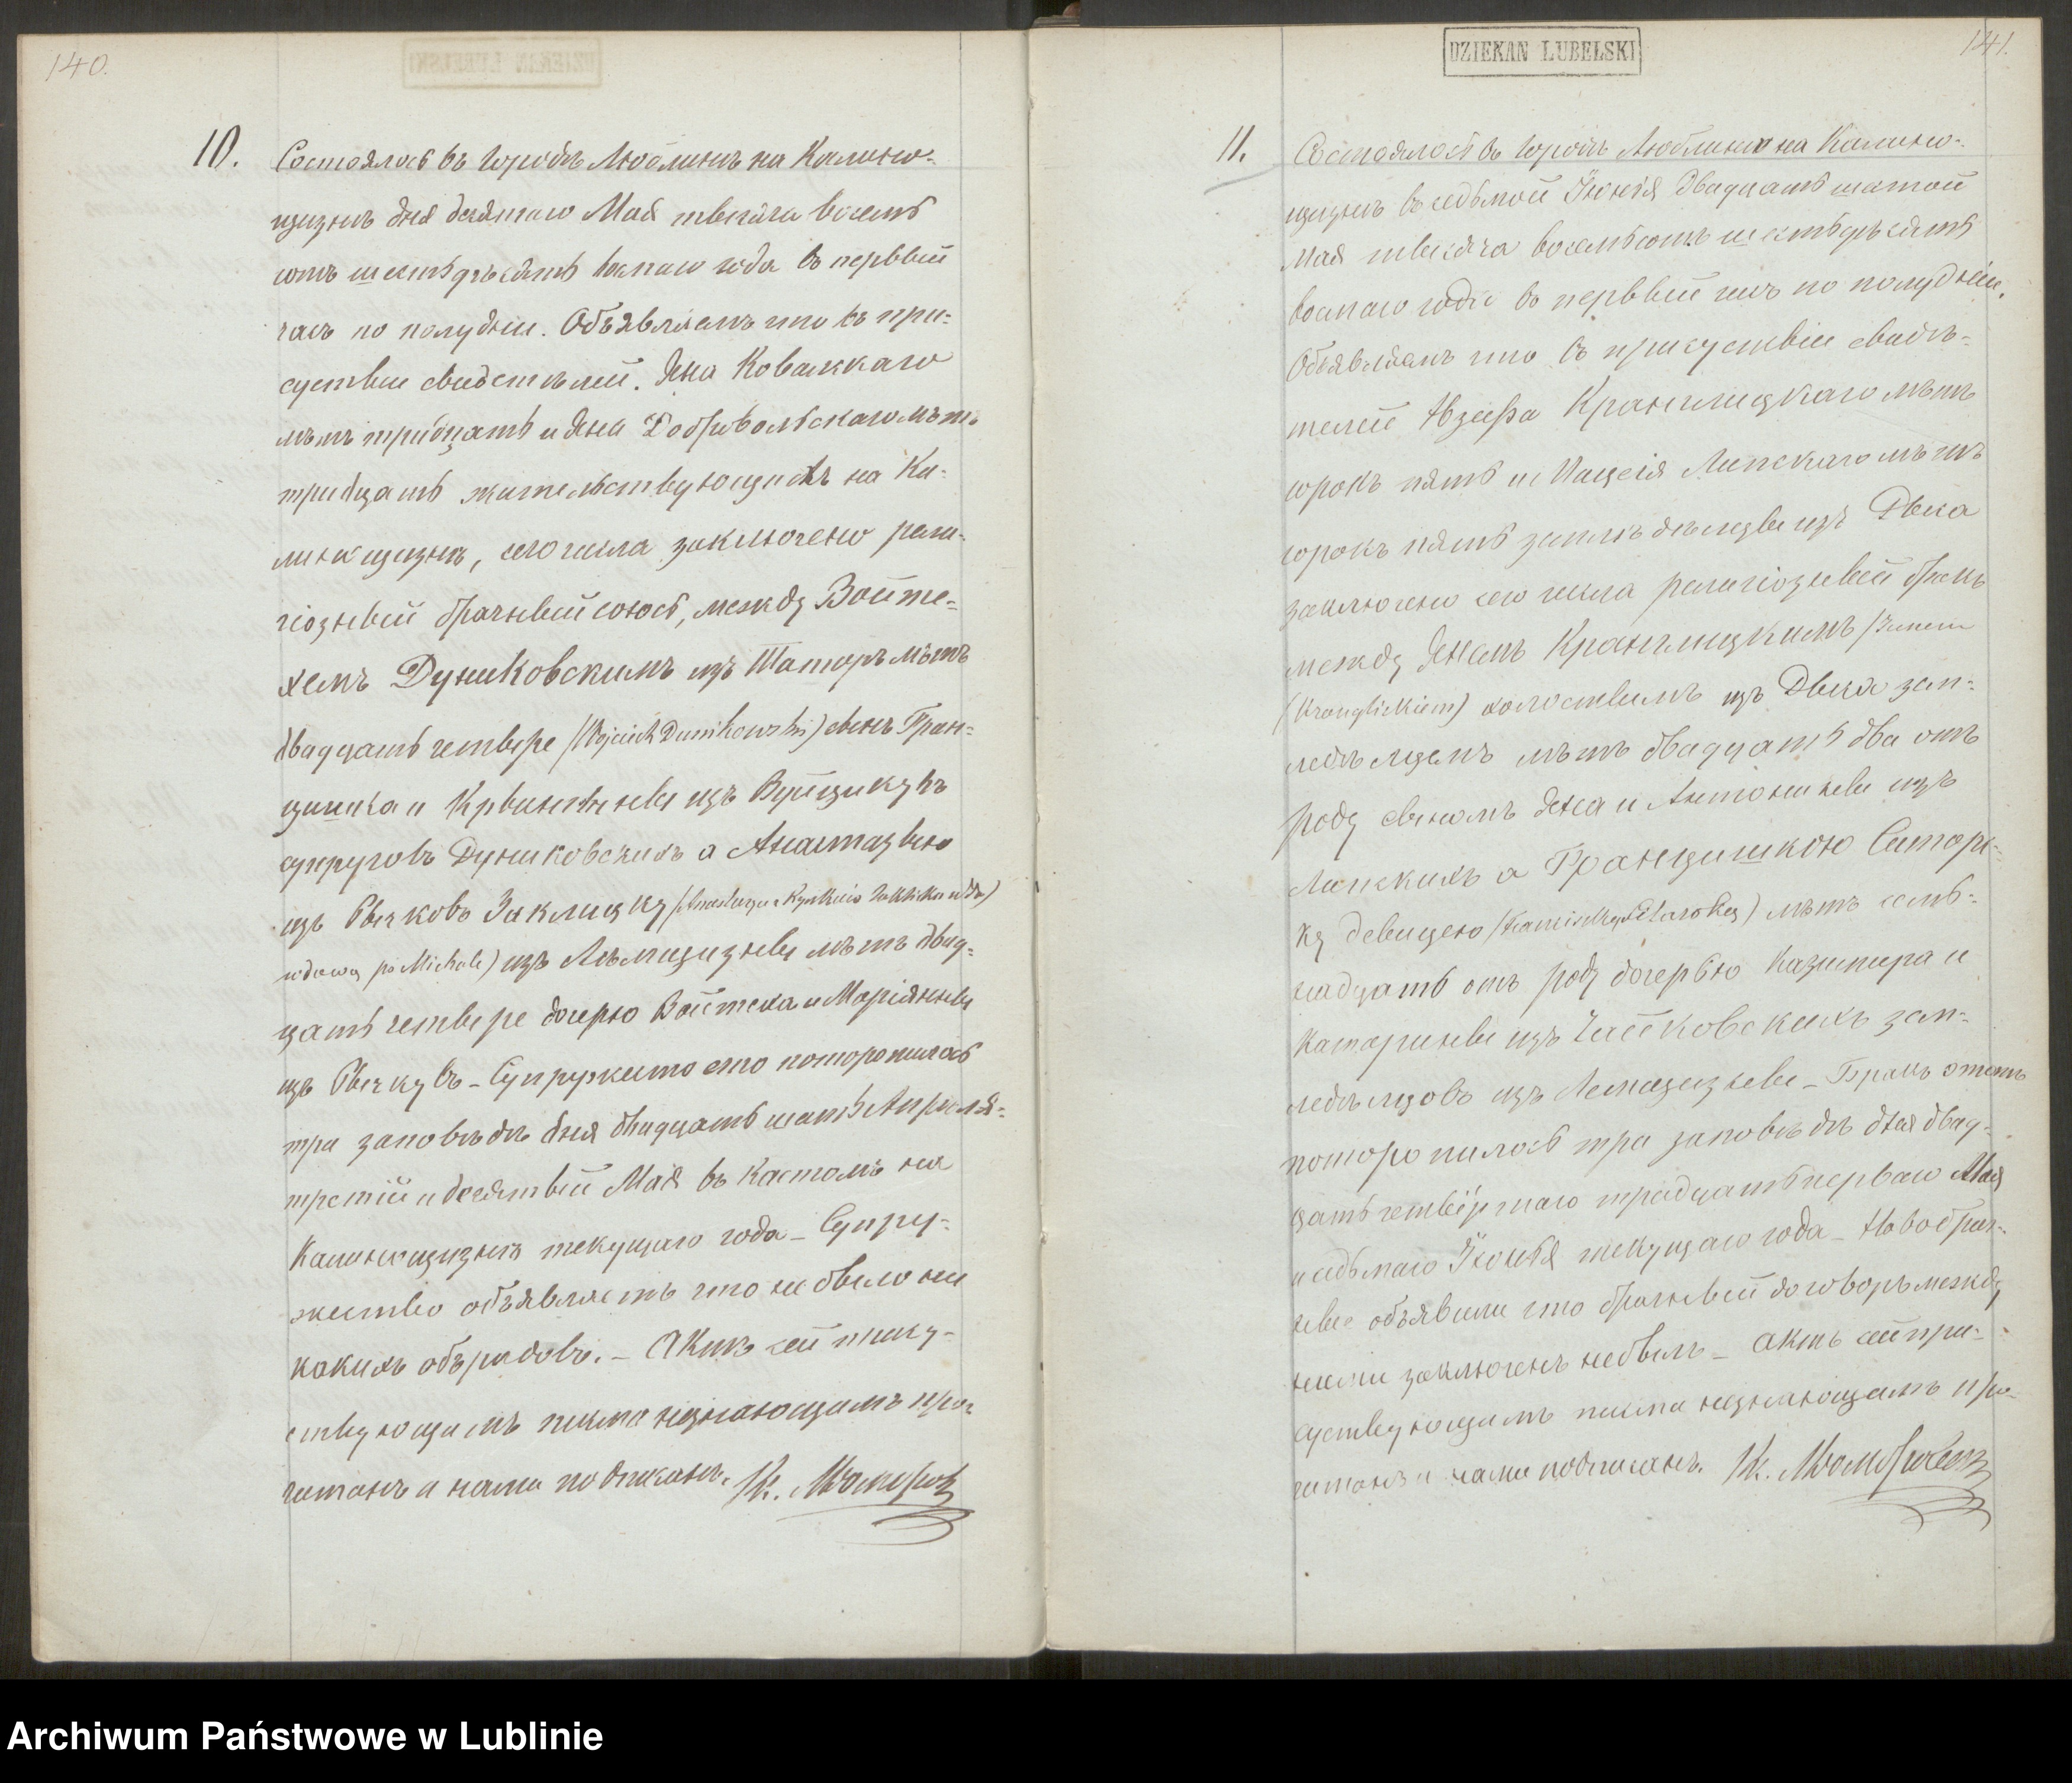 140.
10.
Состоялось въ городѣ Люблинѣ на Калино-
щизнѣ дня девятаго Мая тысяча восемь
сотъ шестьдѣсятъ восмаго года въ первый
часъ по полудни. Объявляемъ что въ при-
суствіи свидетѣлей. Яна Ковалскаго
лѣтъ тридцать и Яна Добровольскаго лѣтъ
тридцать жительствующихъ на Ка-
линощизнѣ, сего числа заключено рели-
гіозный брачный союзъ, между Войте-
хемъ Дуниковскимъ изъ Татаръ лѣтъ
двадцать четыре (Wojciech Dunikowski) сынъ Фран-
цишка и из Вуйцикувъ
супруговъ Дуниковскихъ а Анастазыею
изъ Рычковъ Заклицку
wdową po Michale) изъ двад-
цать четыре дочерю Войтеха и Маріянны
изъ Рычкувъ - Супружито сто поторопилось
три заповѣдѣ дня двадцать шать Апреля-
третій и десятый Мая въ Костолѣ на
Калинощизнѣ текущаго года - Супру-
жество объявляетъ что не было ни
какихъ обърадовъ. - Актъ сей прису-
ствующимъ писма незнающимъ про-
читанъ и нами подписанъ. Кс.
DZIEKAN LUBELSKI
141.
11.
Состоялось въ городѣ Люблинѣ на Калино-
щизнѣ въ седьмой Іюнія двадцать шатой
Мая тысяча восемьсотъ шестьдѣсятъ
восмаго года въ первый часъ по полудніи.
Объявляемъ что въ присуствіи свидѣ-
телей Юзефа Кранглицкаго лѣтъ
сорокъ пять и Мацея Липскаго лѣтъ
сорокъ пять землѣдѣльцы изъ Дыса
заключено сего числа религіозный бракъ
между Яномъ Кранглицкимъ (Janem
(Kranglickiem) холостымъ изъ Дыса зем-
ледѣльцемъ лѣтъ двадцать два отъ
роду сыномъ Яна и Антонины изъ
Липскихъ а Францишкою Ситарс-
ку девицею Sitarską) лѣтъ семь-
надцать отъ роду дочерью Казимира и
Катарины изъ Чайковскихъ зем-
ледѣльцовъ изъ Лемщизны - Бракъ этотъ
поторопилось три заповѣдѣ дня двад-
цать четвёртаго тридцать перваго Мая
и седьмаго Іюнія текущаго года - Новобрач-
ные объявили что брачный договоръ между
ними заключенъ небылъ - Актъ сей при-
суствующимъ писма незнающимъ про-
читанъ и нами подписанъ. Кс.
Archiwum Państwowe w Lublinie